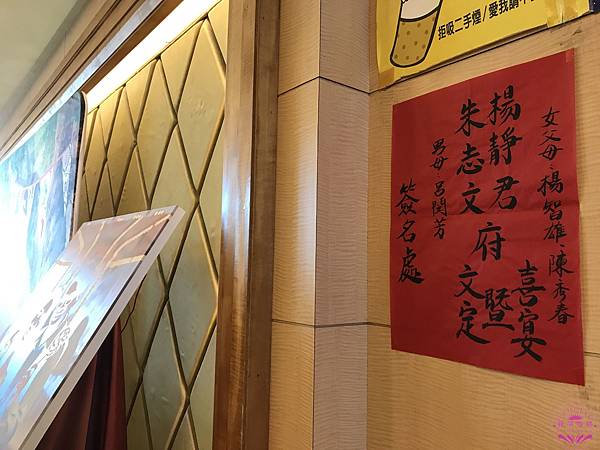 拒吸二手煙/愛我請不
女父母：楊智雄、陳秀春
楊靜君 喜宴
府 暨
朱志文 文定
男母：呂閔芳
簽名處